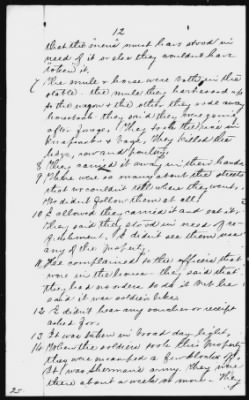 12
that the men must have stood in
need of it or else they wouldn't have
taken it.
7 The mule & horse were both in the
stable. the mule they harnessed up
to the wagon & the other they rode away
horseback they said they was going
after forage. They took the
& bags, they killed the
hogs, sow and poultry.
8 They carried it away in their hands
9 There were so many about the streets
that we couldn't tell where they went.
We didn't follow them at all
10 I allowed they carried it and eat it.
They said they stood in need of
I didn't see them use
any of the property.
11 Was complained to the officers that
were in the house they said that
they had no orders to do it but he
said it was soldier like.
12 I didn't hear any voucher or receipt
asked for.
13 It was taken in broad day light.
14 When the soldiers took this property
they were encamped a
It was Sherman's army. They were
there about a week or more. They
25